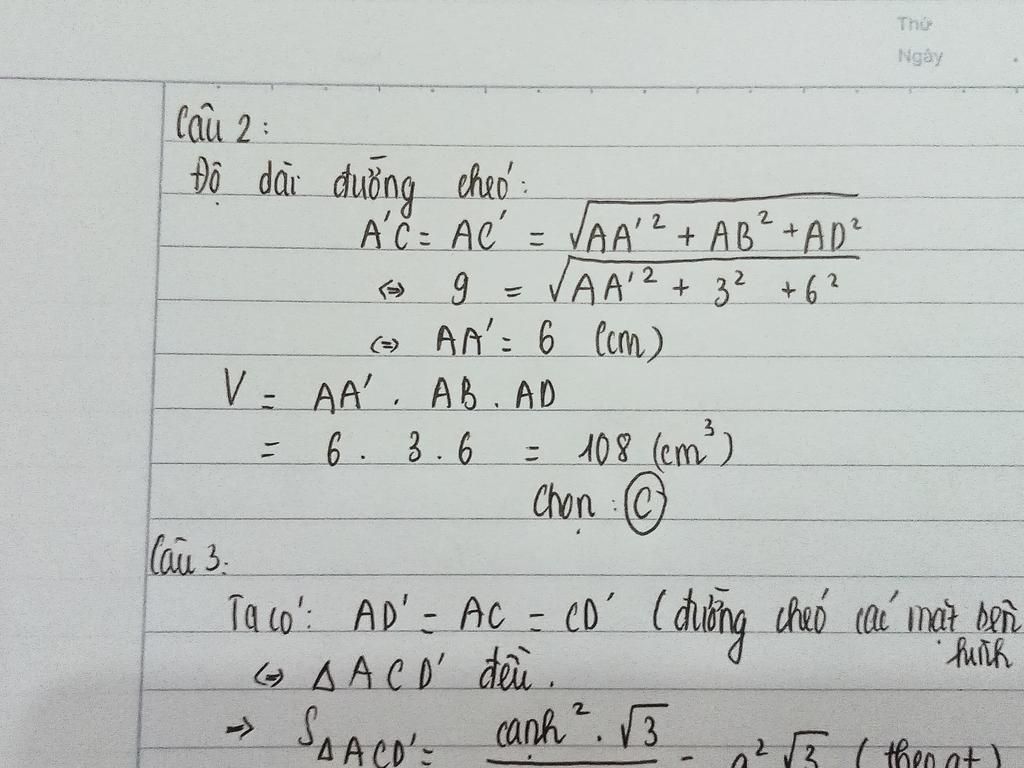 Thứ
Ngày
Câu 2:
Độ dài đường chéo:
A'C = AC' = √AA'² + AB² + AD²
⇔ 9 = √AA'² + 3² + 6²
⇔ AA' = 6 (cm)
V = AA' . AB . AD
= 6 . 3 . 6 = 108 (cm³)
Chọn : C
Câu 3:
Ta có: AD' = AC = CD' (đường chéo các mặt bên
hình
⇔ Δ ACD' đều.
→ S ΔACD' = cạnh² . √3 = a²√3 (theo gt)